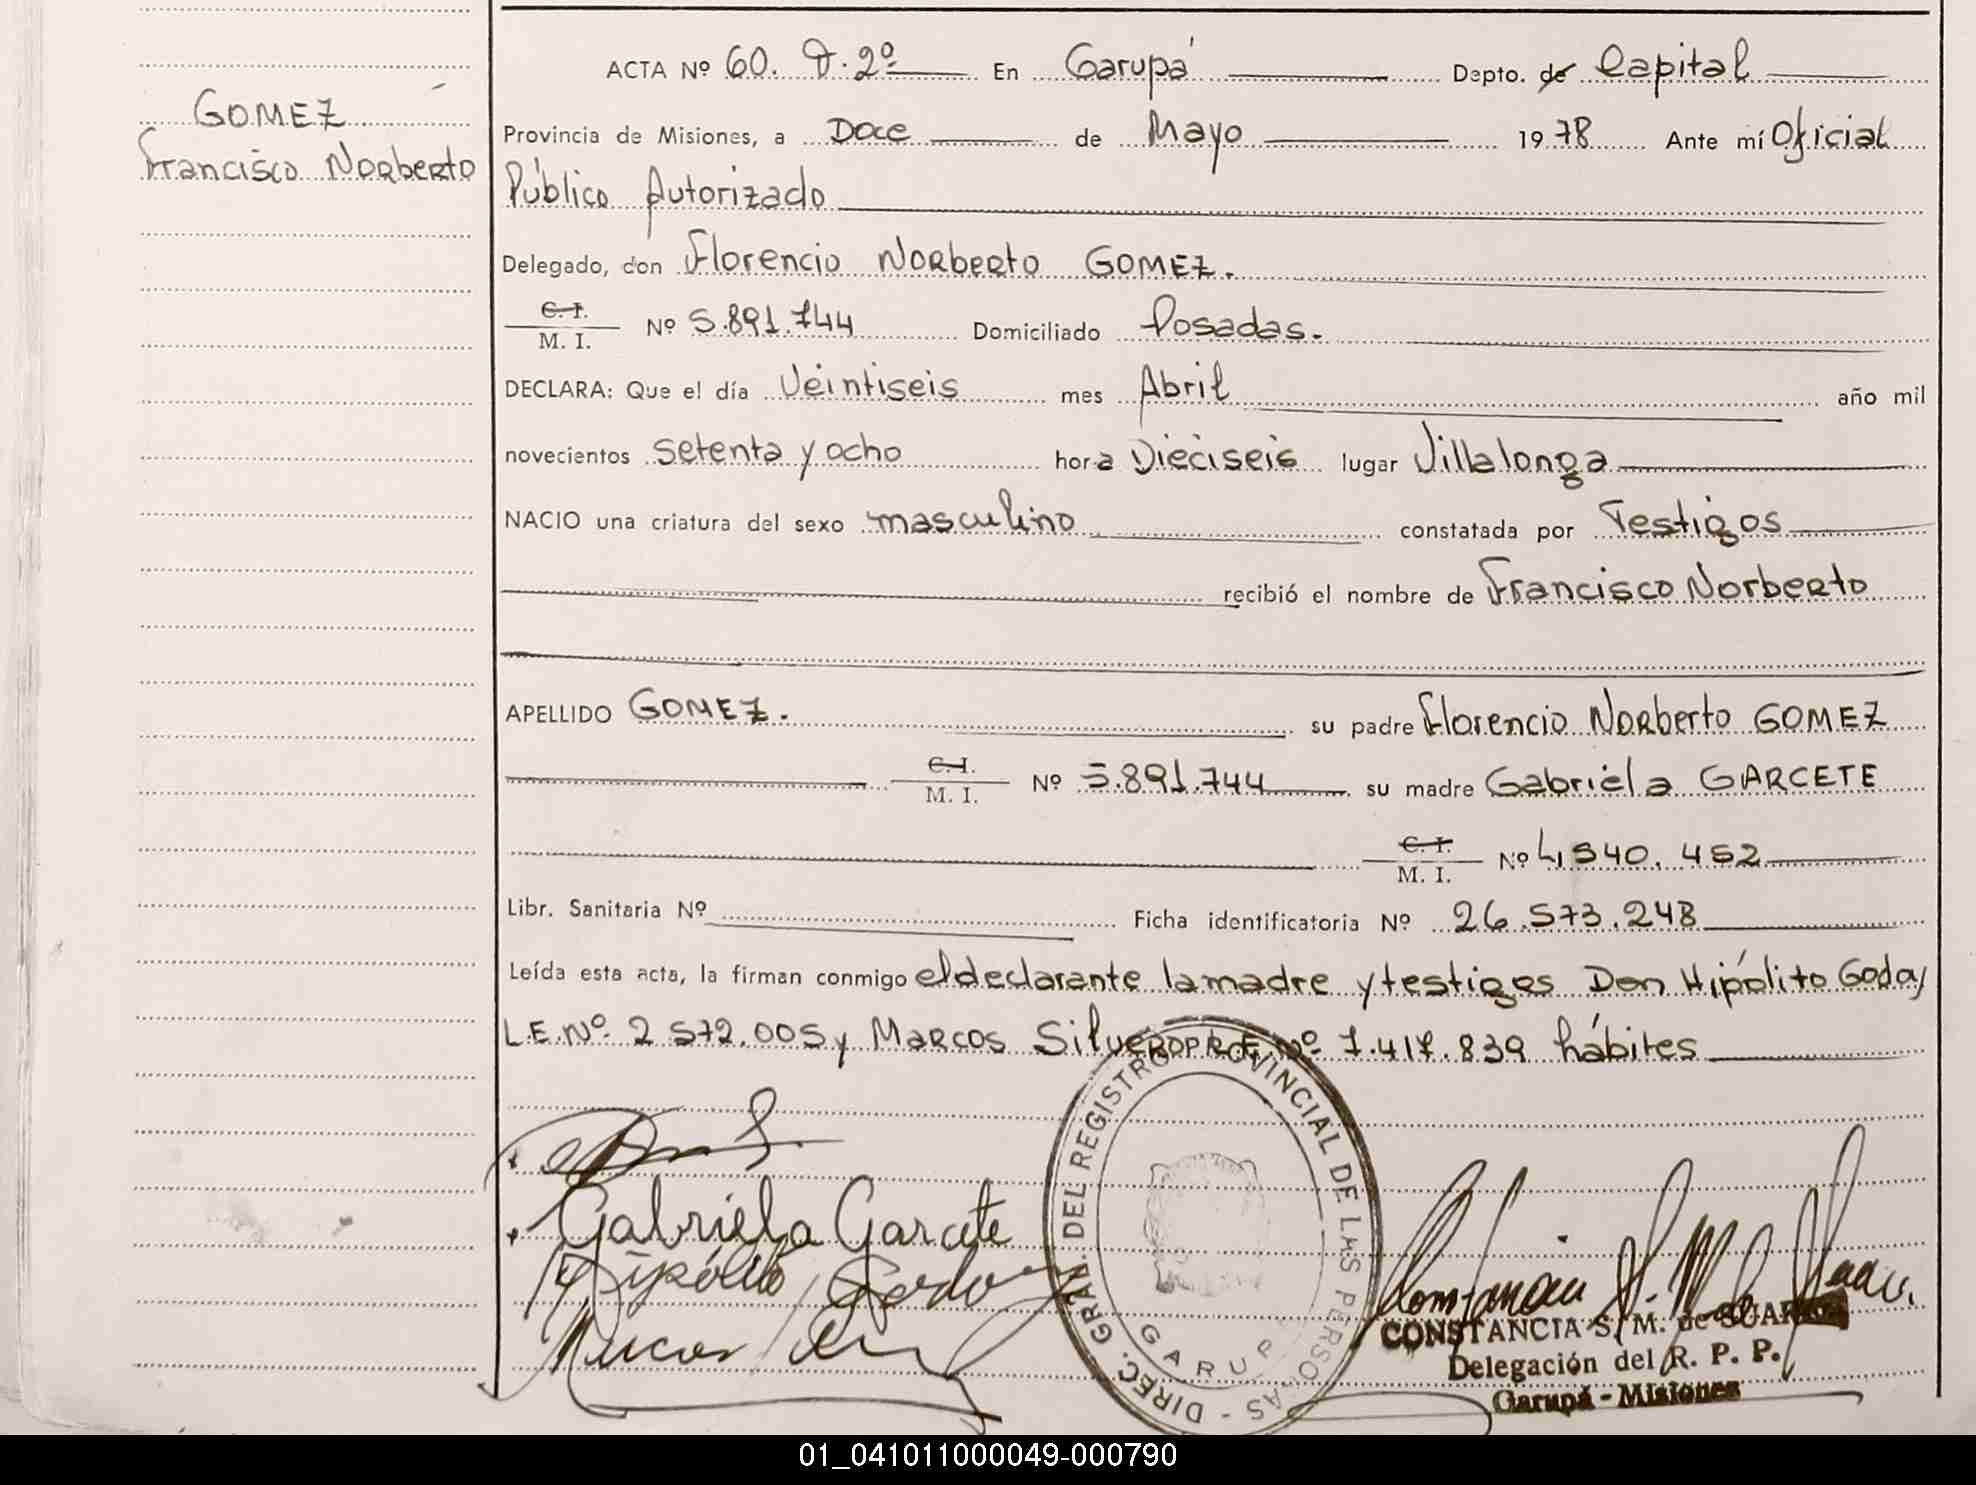 GOMEZ
Francisco Norberto
ACTA Nº 60. D. 2º En Garupá Depto. de Capital
Provincia de Misiones, a Doce de Mayo 1978 Ante mí Oficial
Público Autorizado
Delegado, don Florencio Norberto GOMEZ.
C. I.
M. I. Nº 5.891.744 Domiciliado Posadas.
DECLARA: Que el día Veintiseis mes Abril año mil
novecientos setenta y ocho hora Dieciseis lugar Villalonga
NACIO una criatura del sexo masculino constatada por Testigos
recibió el nombre de Francisco Norberto
APELLIDO GOMEZ. su padre Florencio Norberto GOMEZ
C. I.
M. I. Nº 5.891.744 su madre Gabriela GARCETE
C. I.
M. I. Nº 4.540.452
Libr. Sanitaria Nº Ficha identificatoria Nº 26.573.248
Leída esta acta, la firman conmigo el declarante la madre y testigos Don Hipólito Godoy
L.E. Nº 2 572.005 y Marcos Silvero Nº 7.417.839 hábiles
Gabriela Garcete
Hipólito Godoy
DIREC. GRAL. DEL REGISTRO PROVINCIAL DE LAS PERSONAS -
GARUPA
CONSTANCIA S. M. de SUAREZ
Delegación del R. P. P.
Garupá - Misiones
01_041011000049-000790